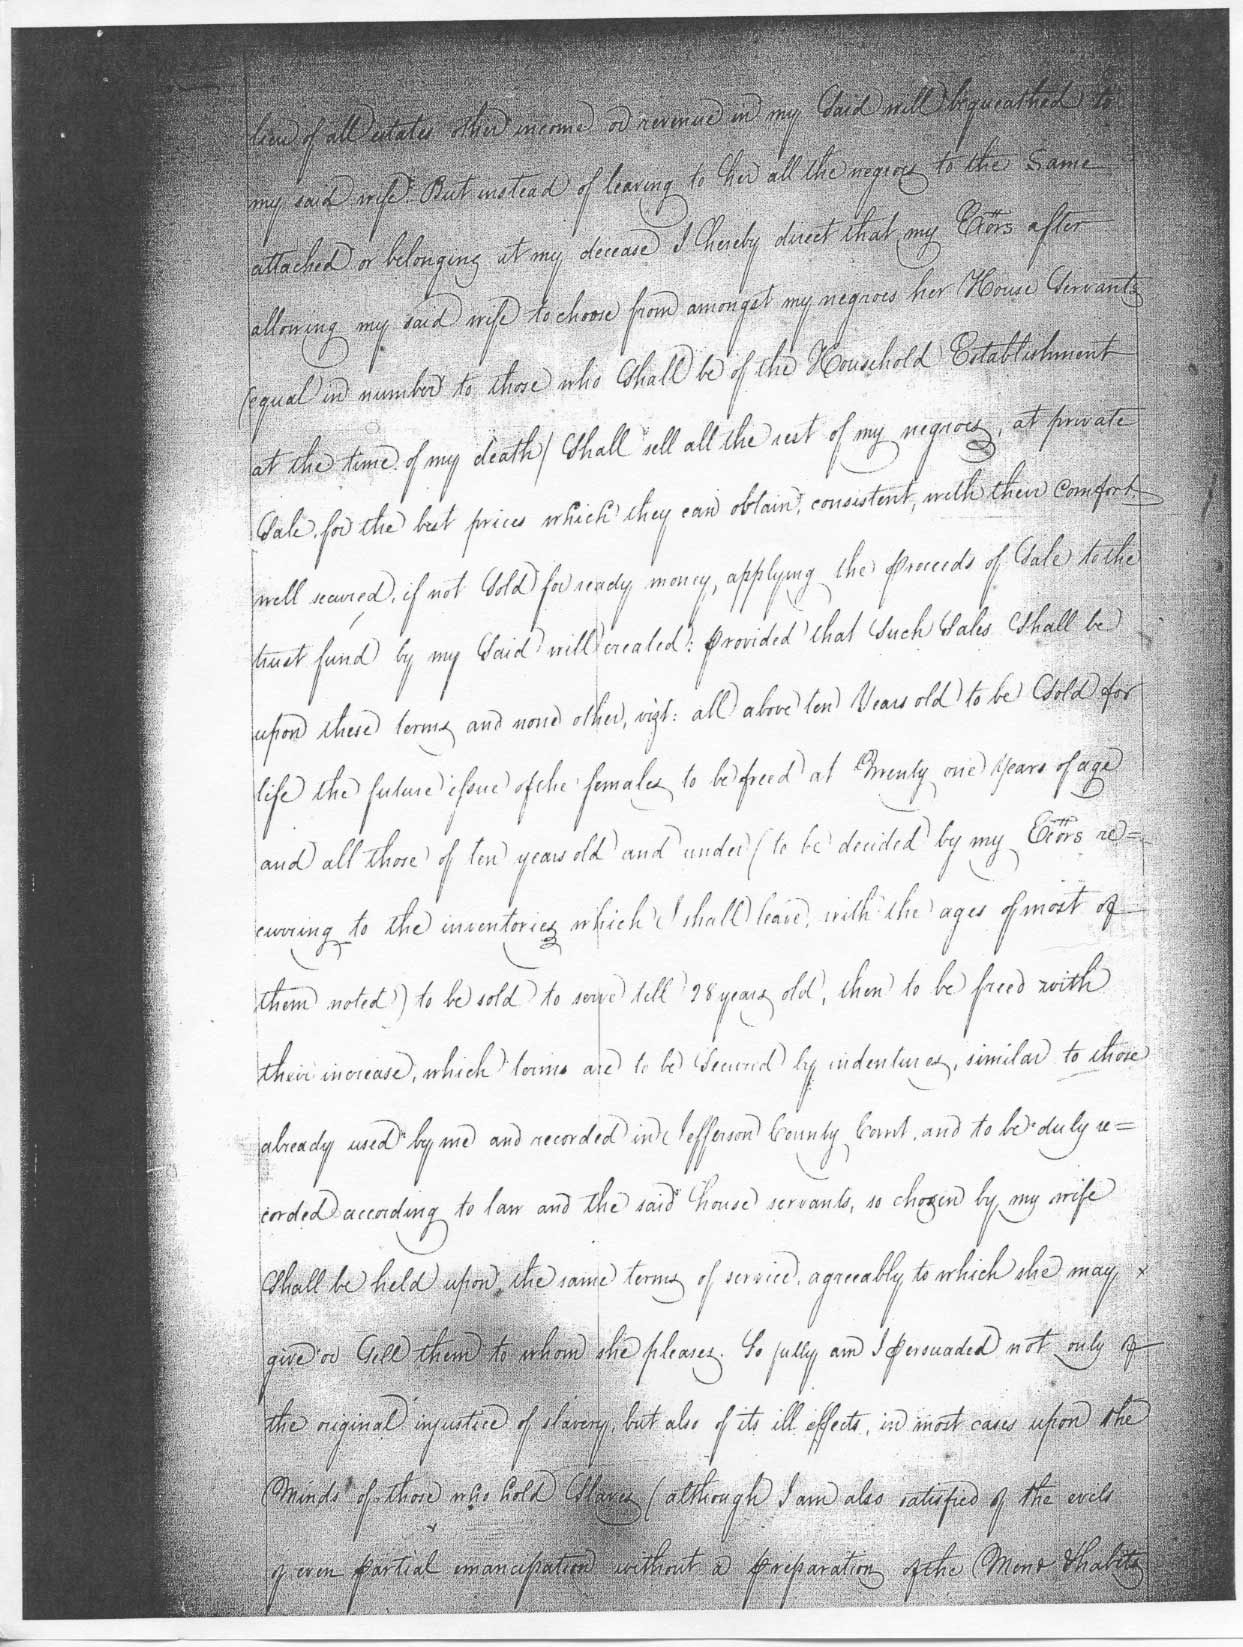 lieu of all estates other income or revenue in my Said will bequeathed to
my said wife. But instead of leaving to her all the negroes to the Same
attached or belonging at my decease I hereby direct that my Exōrs after
allowing my said wife to choose from amongst my negroes her House Servants
(equal in number to those who Shall be of the Household Establishment
at the time of my death) Shall sell all the rest of my negroes, at private
Sale, for the best prices which they can obtain, consistent, with their Comfort
well secured, if not Sold for ready money, applying the proceeds of Sale to the
trust fund by my Said will created: provided that Such Sales Shall be
upon these terms and none other, vizt: all above ten Years old to be Sold for
life the future issue of the females to be freed at Twenty one Years of age
and all those of ten years old and under (to be decided by my Exōrs re=
curring to the inventories which I shall leave, with the ages of most of
them noted) to be sold to serve till 28 years old, then to be freed with
their increase, which terms are to be Secured by indentures, similar to those
already used by me and recorded in Jefferson County Court, and to be duly re=
corded according to law and the said house servants, so chosen by my wife
Shall be held upon the same terms of service, agreeably to which she may
give or Sell them to whom she pleases. So fully am I persuaded not only of
the original injustice of slavery, but also of its ill effects, in most cases upon the
Minds of those who hold Slaves (although I am also satisfied of the evels
of even partial emancipation without a preparation of the Mind & habits